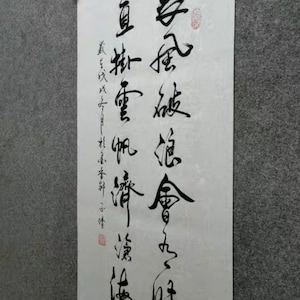 長風破浪會有時
直掛雲帆濟滄海
歲在戊戌冬月於